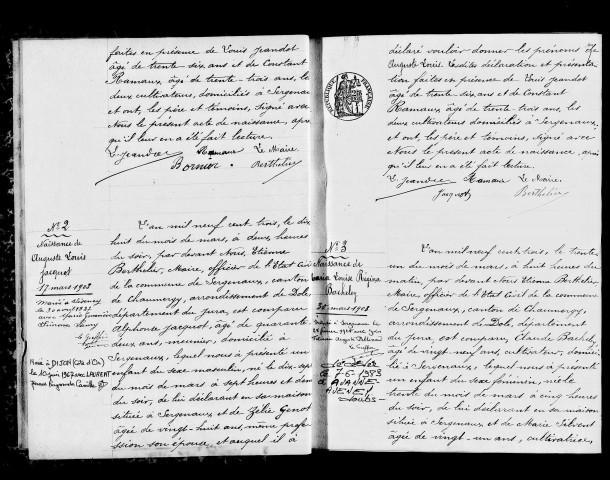 faites en présence de Louis Jeandot
âgé de trente-six ans et de Constant
Ramaux, âgé de trente-trois ans, les
deux cultivateurs, domiciliés à Sergenaux
et ont, les père et témoins, signé avec
Nous le présent acte de naissance, après
qu'il leur en a été fait lecture.
L. Jeandot Ramaux Le Maire
Bornier. Berthelier
N° 2
Naissance de
Auguste Louis
Jacquot
17 mars 1903
Marié à
le 30 avril 1931
avec
Marié à DIJON (Côte d'Or)
le 10 juin 1967 avec LAURENT
Raymonde Camille
L'an mil neuf cent trois, le dix
huit du mois de mars, à deux heures
du soir, par devant Nous, Etienne
Berthelier, Maire, officier de l'Etat Civil
de la commune de Sergenaux, canton
de Chaumergy, arrondissement de Dole,
département du Jura, est comparu
Alphonse Jacquot, âgé de quarante
deux ans, meunier, domicilié à
Sergenaux, lequel nous a présenté un
enfant du sexe masculin, né le dix-sept
du mois de mars à sept heures et demi
du soir, de lui déclarant en sa maison
située à Sergenaux et de Zélie Genot
âgée de vingt-huit ans, même profes
sion son épouse, et auquel il a
déclaré vouloir donner les prénoms de
Auguste Louis. Lesdites déclaration et présenta
tion faites en présence de Louis Jeandot
âgé de trente-six ans et de Constant
Ramaux, âgé de trente-trois ans, les
deux cultivateurs domiciliés à Sergenaux,
et ont, les père et témoins, signé avec
Nous le présent acte de naissance, après
qu'il leur en a été fait lecture.
L. Jeandot Ramaux Le Maire
Jacquot Berthelier
N° 3
Naissance de
Maria Louise Régina
Bachely
30 mars 1903
Mariée à Sergenaux le
février 1925 avec
Décédée
le 7-6-1983
à AVANNE
AVENEY
Doubs
L'an mil neuf cent trois, le trente
un du mois de mars, à huit heures du
matin, par devant Nous Etienne Berthelier,
Maire, officier de l'Etat Civil de la commune
de Sergenaux, canton de Chaumergy,
arrondissement de Dole, département
du Jura, est comparu, Claude Bachely,
âgé de vingt-neuf ans, cultivateur, domici
lié à Sergenaux, lequel nous a présenté
un enfant du sexe féminin, né le
trente du mois de mars à cinq heures
du soir, de lui déclarant en sa maison
située à Sergenaux et de Marie Salvent
âgée de vingt-un ans, cultivatrice,